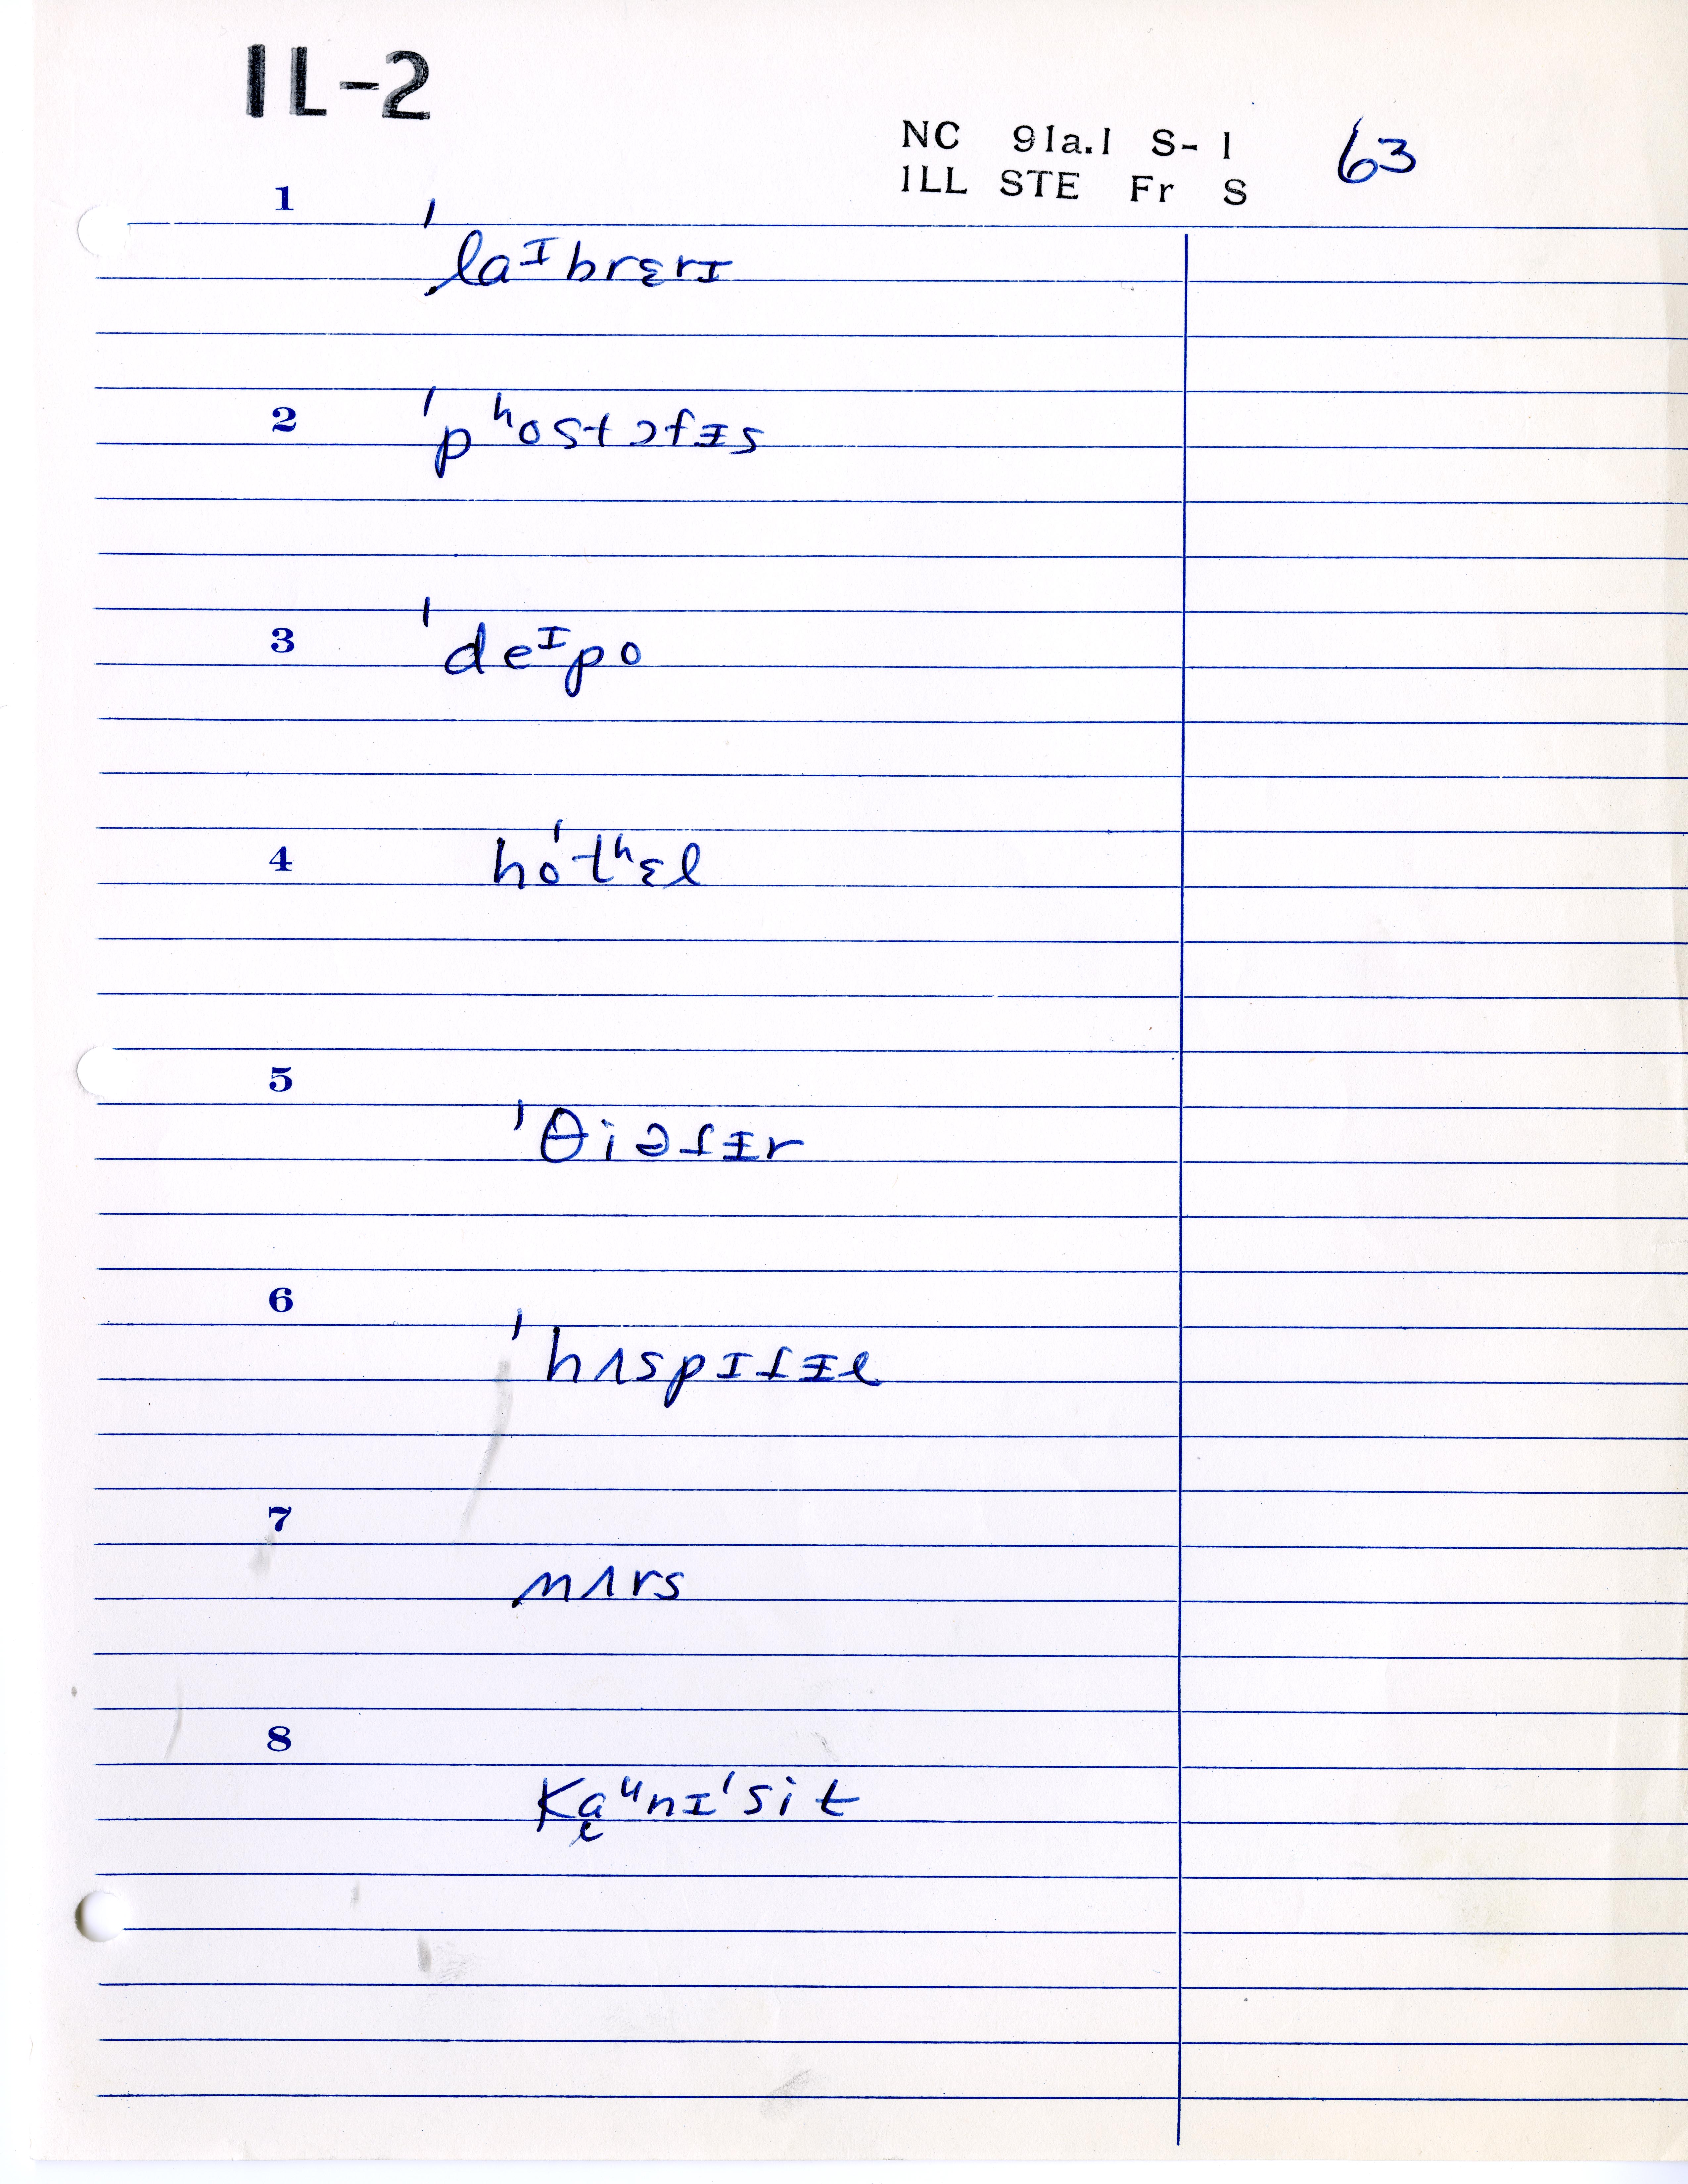 IL-2
NC 91a.1 S-1 63
ILL STE Fr S
1
ˈlaᴵbrɛrɪ
2
ˈpʰostɔfᵻs
3
ˈdeᴵpo
4
hoˈtʰɛl
5
ˈθiəɾᵻr
6
ˈhʌspɪɾᵻl
7
nʌrs
8
ka̜ᵘnɪˈsit